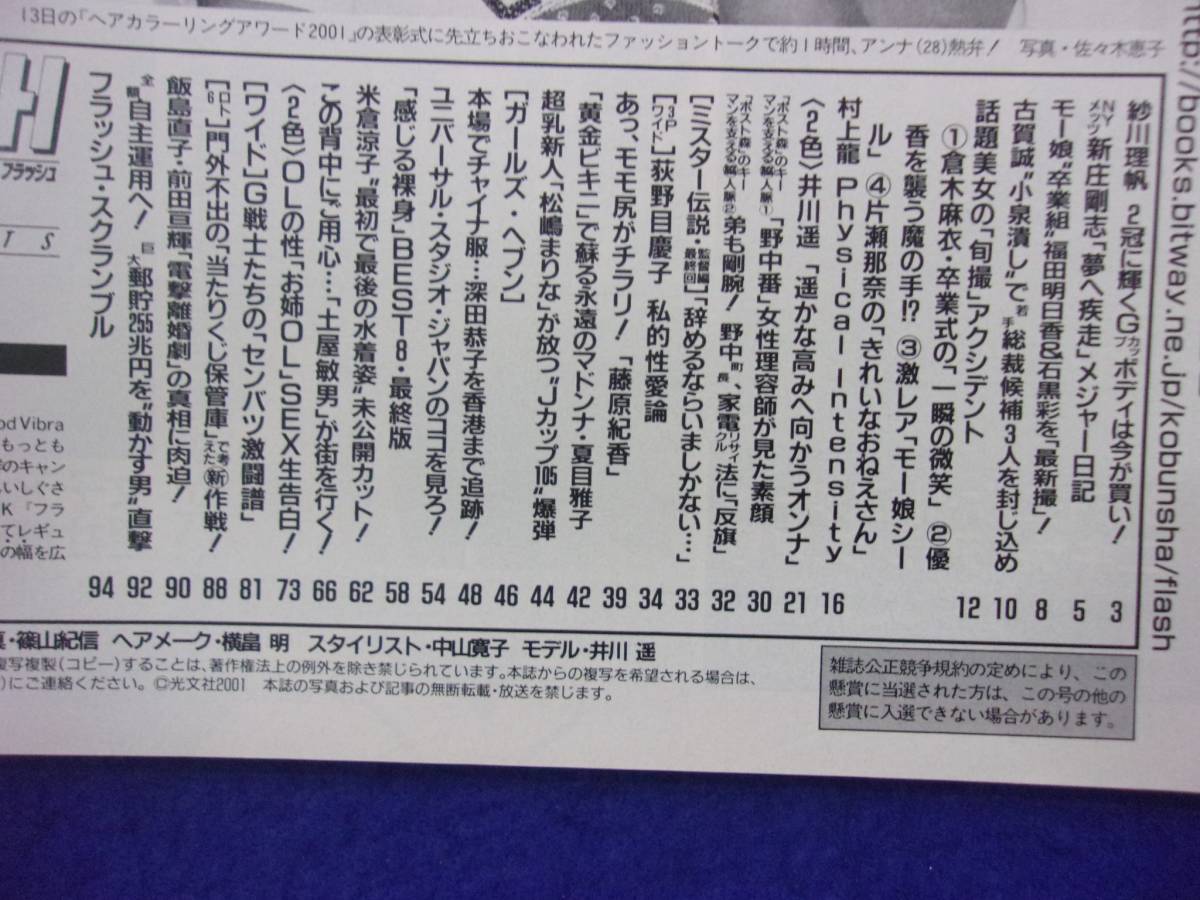 13日の「ヘアカラーリングアワード2001」の表彰式に先立ちおこなわれたファッショントークで約1時間、アンナ(28)熱弁! 写真・佐々木恵子
http://book.bitway.ne.jp/kobunsha/flash
紗川理帆 2冠に輝くGカップボディは今が買い! 3
NYメッツ 新庄剛志「夢へ疾走」メジャー日記 5
モー娘“卒業組”福田明日香&石黒彩を「最新撮」! 8
古賀誠“小泉潰し”で若手総裁候補3人を封じ込め 10
話題美女の「旬撮」アクシデント 12
①倉木麻衣・卒業式の「一瞬の微笑」 ②優
香を襲う魔の手!? ③激レア「モー娘シー
ル」 ④片瀬那奈の「きれいなおねえさん」
村上龍 Physical Intensity 16
〈2色〉井川遥 「遥かな高みへ向かうオンナ」 21
「ポスト森」のキーマンを支える㊙人脈① 「野中番」女性理容師が見た素顔 30
「ポスト森」のキーマンを支える㊙人脈② 弟も剛腕! 野中町長、家電リサイクル法に「反旗」 32
[ミスター伝説・監督編最終回]「辞めるならいましかない…」 33
[3Pワイド]荻野目慶子 私的性愛論 34
あっ、モモ尻がチラリ! 「藤原紀香」 39
「黄金ビキニ」で蘇る永遠のマドンナ・夏目雅子 42
超乳新人「松嶋まりな」が放つ“Jカップ105”爆弾 44
[ガールズ・ヘブン] 46
本場でチャイナ服…深田恭子を香港まで追跡! 48
ユニバーサル・スタジオ・ジャパンのココを見ろ! 54
「感じる裸身」BEST8・最終版 58
米倉涼子“最初で最後の水着姿”未公開カット! 62
この背中にご用心…「土屋敏男」が街を行く! 66
〈2色〉OLの性「お姉OL」SEX生告白! 73
[ワイド]G戦士たちの「センバツ激闘譜」 81
[ロト6]門外不出の「当たりくじ保管庫」で考えた㊟作戦! 88
飯島直子・前田亘輝「電撃離婚劇」の真相に肉迫! 90
全額自主運用へ! 巨大郵貯255兆円を“動かす男”直撃 92
フラッシュ・スクランブル 94
フラッシュ
T S
od Vibra
もっとも
のキャン
いしぐさ
K『フラ
てレギュ
の幅を広
真・篠山紀信 ヘアメーク・横畠 明 スタイリスト・中山寛子 モデル・井川 遥
複写複製(コピー)することは、著作権法上の例外を除き禁じられています。本誌からの複写を希望される場合は、
)にご連絡ください。©光文社2001 本誌の写真および記事の無断転載・放送を禁じます。
雑誌公正競争規約の定めにより、この
懸賞に当選された方は、この号の他の
懸賞に入選できない場合があります。